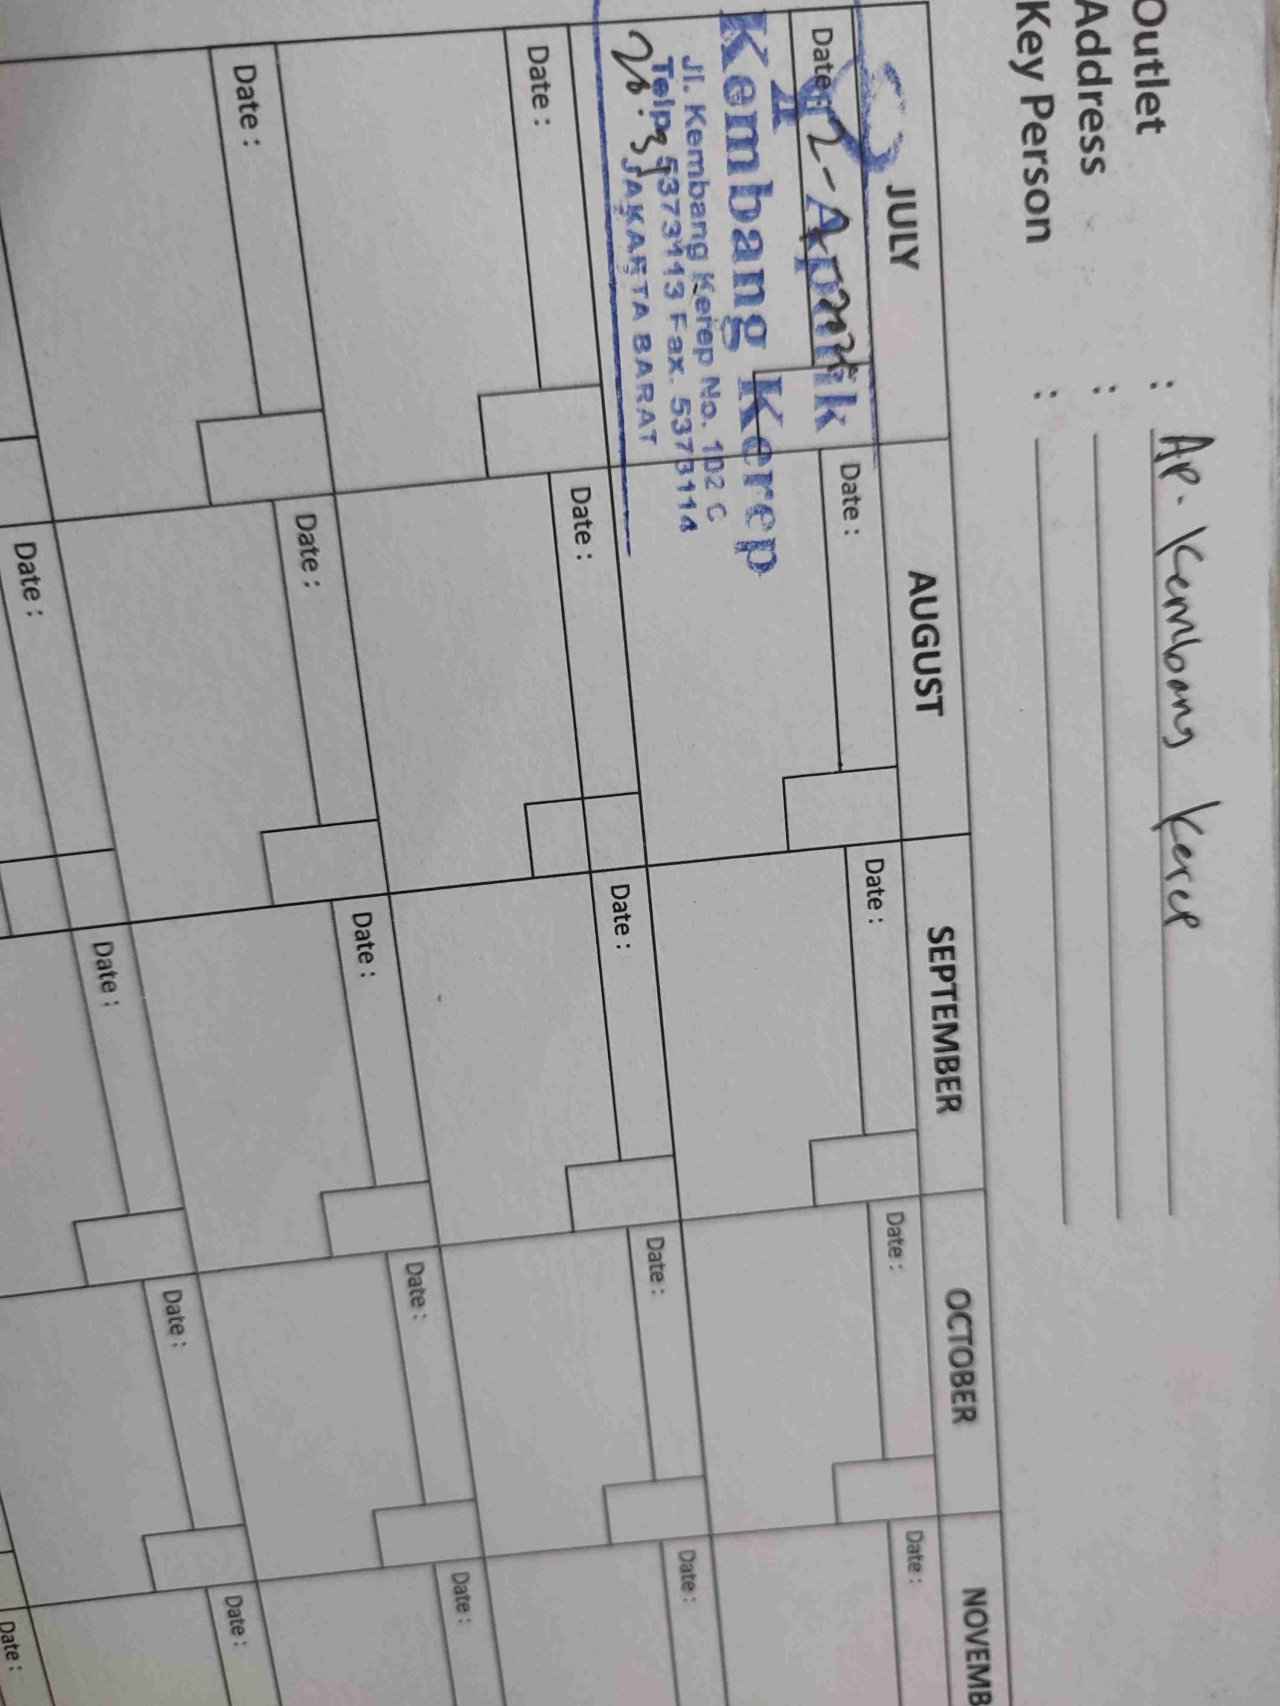 Outlet : AP. Kembang Kerep
Address :
Key Person :
JULY AUGUST SEPTEMBER OCTOBER NOVEMB
Date : Date : Date : Date : Date :
Apotik
Kembang Kerep
Jl. Kembang Kerep No. 102 C
Telp. 5373113 Fax. 5373114
JAKARTA BARAT
Date : Date : Date : Date : Date :
Date : Date : Date : Date : Date :
Date : Date : Date : Date :